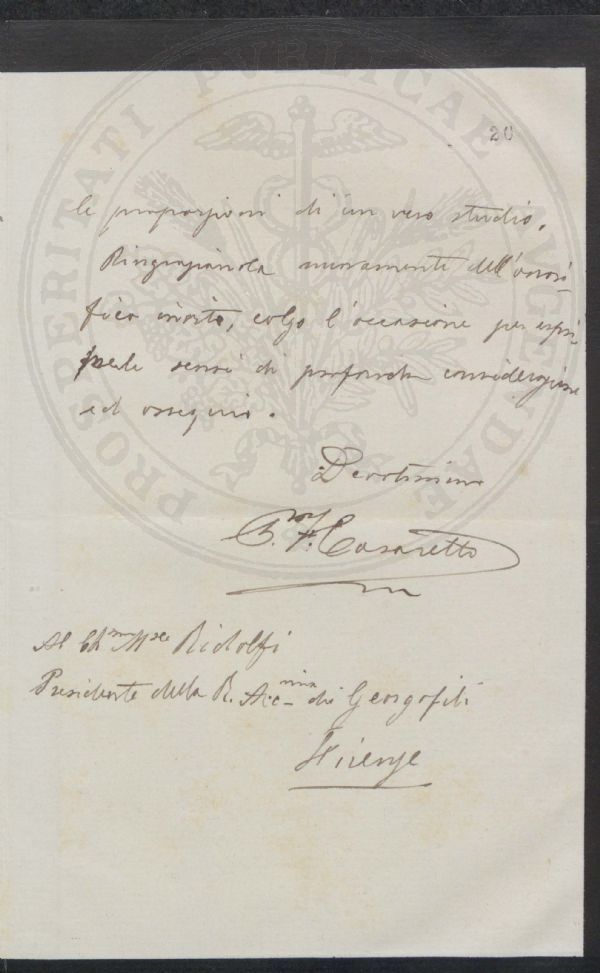 PROSPERITATI PVBLICAE AVGENDAE
20
le proporzioni di un vero studio.
Ringraziandola nuovamente dell'onori-
fico invito, colgo l'occasione per espri
merle sensi di profonda considerazione
ed ossequio.
Devotissimo
F. Casaretto
Al Ch.mo M.se Ridolfi
Presidente della R. Acc. dei Georgofili
Firenze